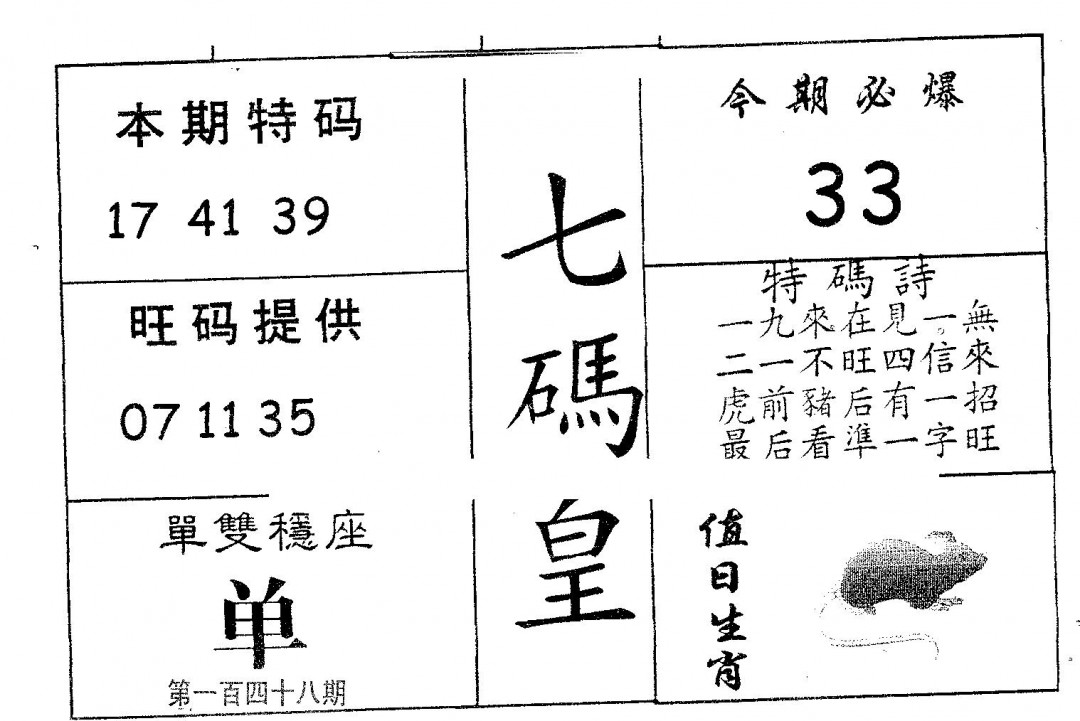 本期特码
17 41 39
旺码提供
07 11 35
單雙穩座
单
第一百四十八期
七碼皇
今期必爆
33
特碼詩
一九來在見一無
二一不旺四信來
虎前豬后有一招
最后看準一字旺
值日生肖